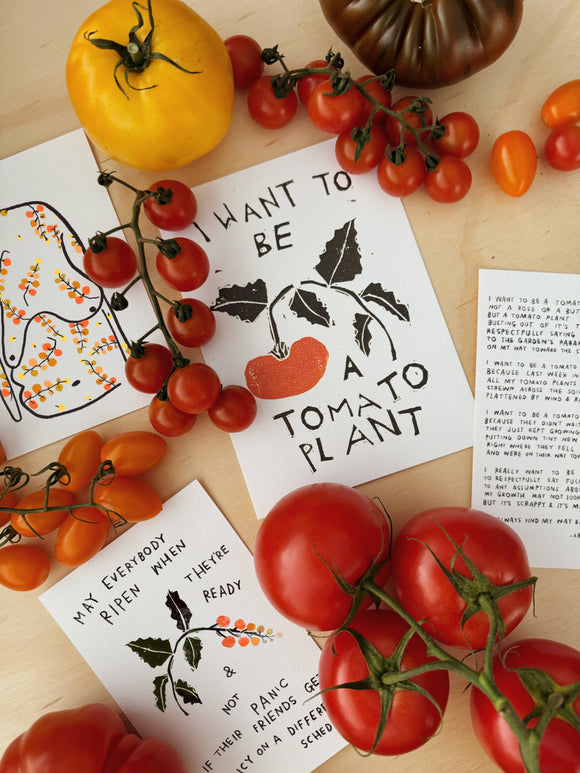 I WANT TO
BE
A
TOMATO
PLANT
I WANT TO BE A TOMAT
NOT A ROSE OR A BUT
BUT A TOMATO PLANT
BUSTING OUT OF IT'S
RESPECTFULLY SAYING
TO THE GARDEN'S PARA
ON MY WAY TOWARD THE
I WANT TO BE A TOMATO
BECAUSE LAST WEEK IN
ALL MY TOMATO PLANTS
STREWN ACROSS THE SO
FLATTENED BY WIND & RA
I WANT TO BE A TOMATO
BECAUSE THEY DIDN'T WAIT
THEY JUST KEPT GROWING
PUTTING DOWN TINY NEW
RIGHT WHERE THEY FELL
AND WERE ON THEIR WAY TOW
I REALLY WANT TO BE
TO RESPECTFULLY SAY FU
TO ANY ASSUMPTIONS ABO
MY GROWTH MAY NOT LOOK
BUT IT'S SCRAPPY & IT'S M
ALWAYS FIND MY WAY BA
MAY EVERYBODY
RIPEN WHEN
THEY'RE
READY
&
NOT PANIC
IF THEIR FRIENDS GE
ICY ON A DIFFER
SCHED